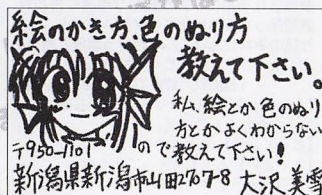 絵のかき方、色のぬり方
教えて下さい。
私、絵とか色のぬり
方とかよくわからない
ので教えて下さい!
〒950-1101
新潟県新潟市山田2767-8 大沢美雪